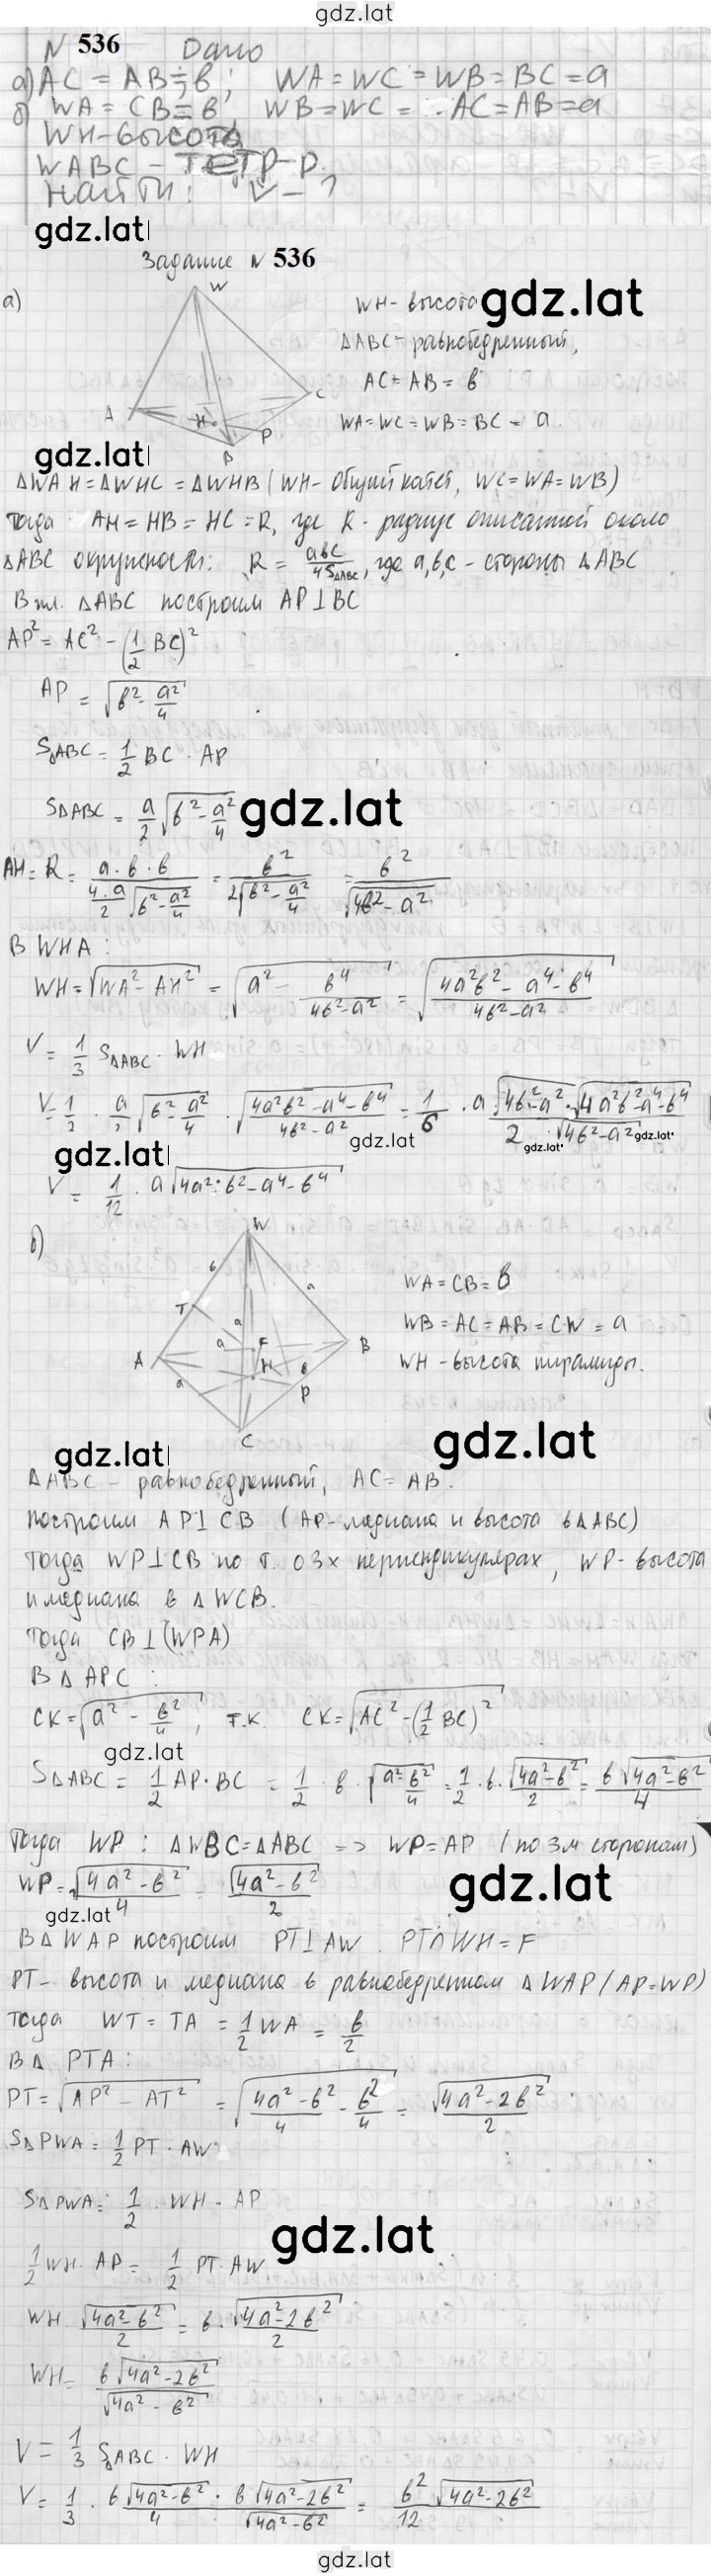 gdz.lat
N 536 Дано
а) AC = AB = в; WA = WC = WB = BC = a
б) WA = CB = в WB = WC = AC = AB = a
WH - высота
WABC - тетр-р.
Найти: V - ?
gdz.lat
Задание N 536
а)
W
A
H
C
P
B
WH - высота gdz.lat
ΔABC - равнобедренный,
AC = AB = в
WA = WC = WB = BC = a
gdz.lat
ΔWAH = ΔWHC = ΔWHB (WH - общий катет, WC = WA = WB)
Тогда AH = HB = HC = R, где R - радиус описанной около
ΔABC окружности: R = aвc / 4SΔABC, где a, в, c - стороны ΔABC
В пл. ΔABC построим AP ⊥ BC
AP² = AC² - (1/2 BC)²
AP = √(в² - a²/4)
SΔABC = 1/2 BC · AP
SΔABC = a/2 √(в² - a²/4) gdz.lat
AH = R = a · в · в / (4 · a/2 √(в² - a²/4)) = в² / (2√(в² - a²/4)) = в² / √(4в² - a²)
В WHA:
WH = √(WA² - AH²) = √(a² - в⁴/(4в² - a²)) = √((4a²в² - a⁴ - в⁴)/(4в² - a²))
V = 1/3 SΔABC · WH
V = 1/3 · a/2 √(в² - a²/4) · √((4a²в² - a⁴ - в⁴)/(4в² - a²)) = 1/6 · a √(4в² - a²) · √(4a²в² - a⁴ - в⁴) / (2 · √(4в² - a²))
gdz.lat
gdz.lat
gdz.lat
gdz.lat
V = 1/12 · a√(4a² · в² - a⁴ - в⁴)
б)
W
в
a
T
a
a
F
A
H
B
a
в
P
C
WA = CB = в
WB = AC = AB = CW = a
WH - высота пирамиды.
gdz.lat
gdz.lat
ΔABC - равнобедренный, AC = AB.
Построим AP ⊥ CB (AP - медиана и высота в ΔABC)
Тогда WP ⊥ CB по т. о 3х перпендикулярах, WP - высота
и медиана в ΔWCB.
Тогда CB ⊥ (WPA)
В ΔAPC:
CK = √(a² - в²/4), т.к. CK = √(AC² - (1/2 BC)²)
gdz.lat
SΔABC = 1/2 AP · BC = 1/2 · в · √(a² - в²/4) = 1/2 · в · √(4a² - в²)/2 = в√(4a² - в²)/4
Тогда WP: ΔWBC = ΔABC => WP = AP (по 3м сторонам)
WP = √((4a² - в²)/4) = √(4a² - в²)/2
gdz.lat
gdz.lat
В ΔWAP построим PT ⊥ AW. PT ∩ WH = F
PT - высота и медиана в равнобедренном ΔWAP (AP = WP)
Тогда WT = TA = 1/2 WA = в/2
В Δ PTA:
PT = √(AP² - AT²) = √((4a² - в²)/4 - в²/4) = √(4a² - 2в²)/2
SΔPWA = 1/2 PT · AW
SΔPWA = 1/2 · WH · AP
gdz.lat
1/2 WH · AP = 1/2 PT · AW
WH · √(4a² - в²)/2 = в · √(4a² - 2в²)/2
WH = в√(4a² - 2в²) / √(4a² - в²)
V = 1/3 SΔABC · WH
V = 1/3 · в√(4a² - в²)/4 · в√(4a² - 2в²)/√(4a² - в²) = в²√(4a² - 2в²)/12
gdz.lat